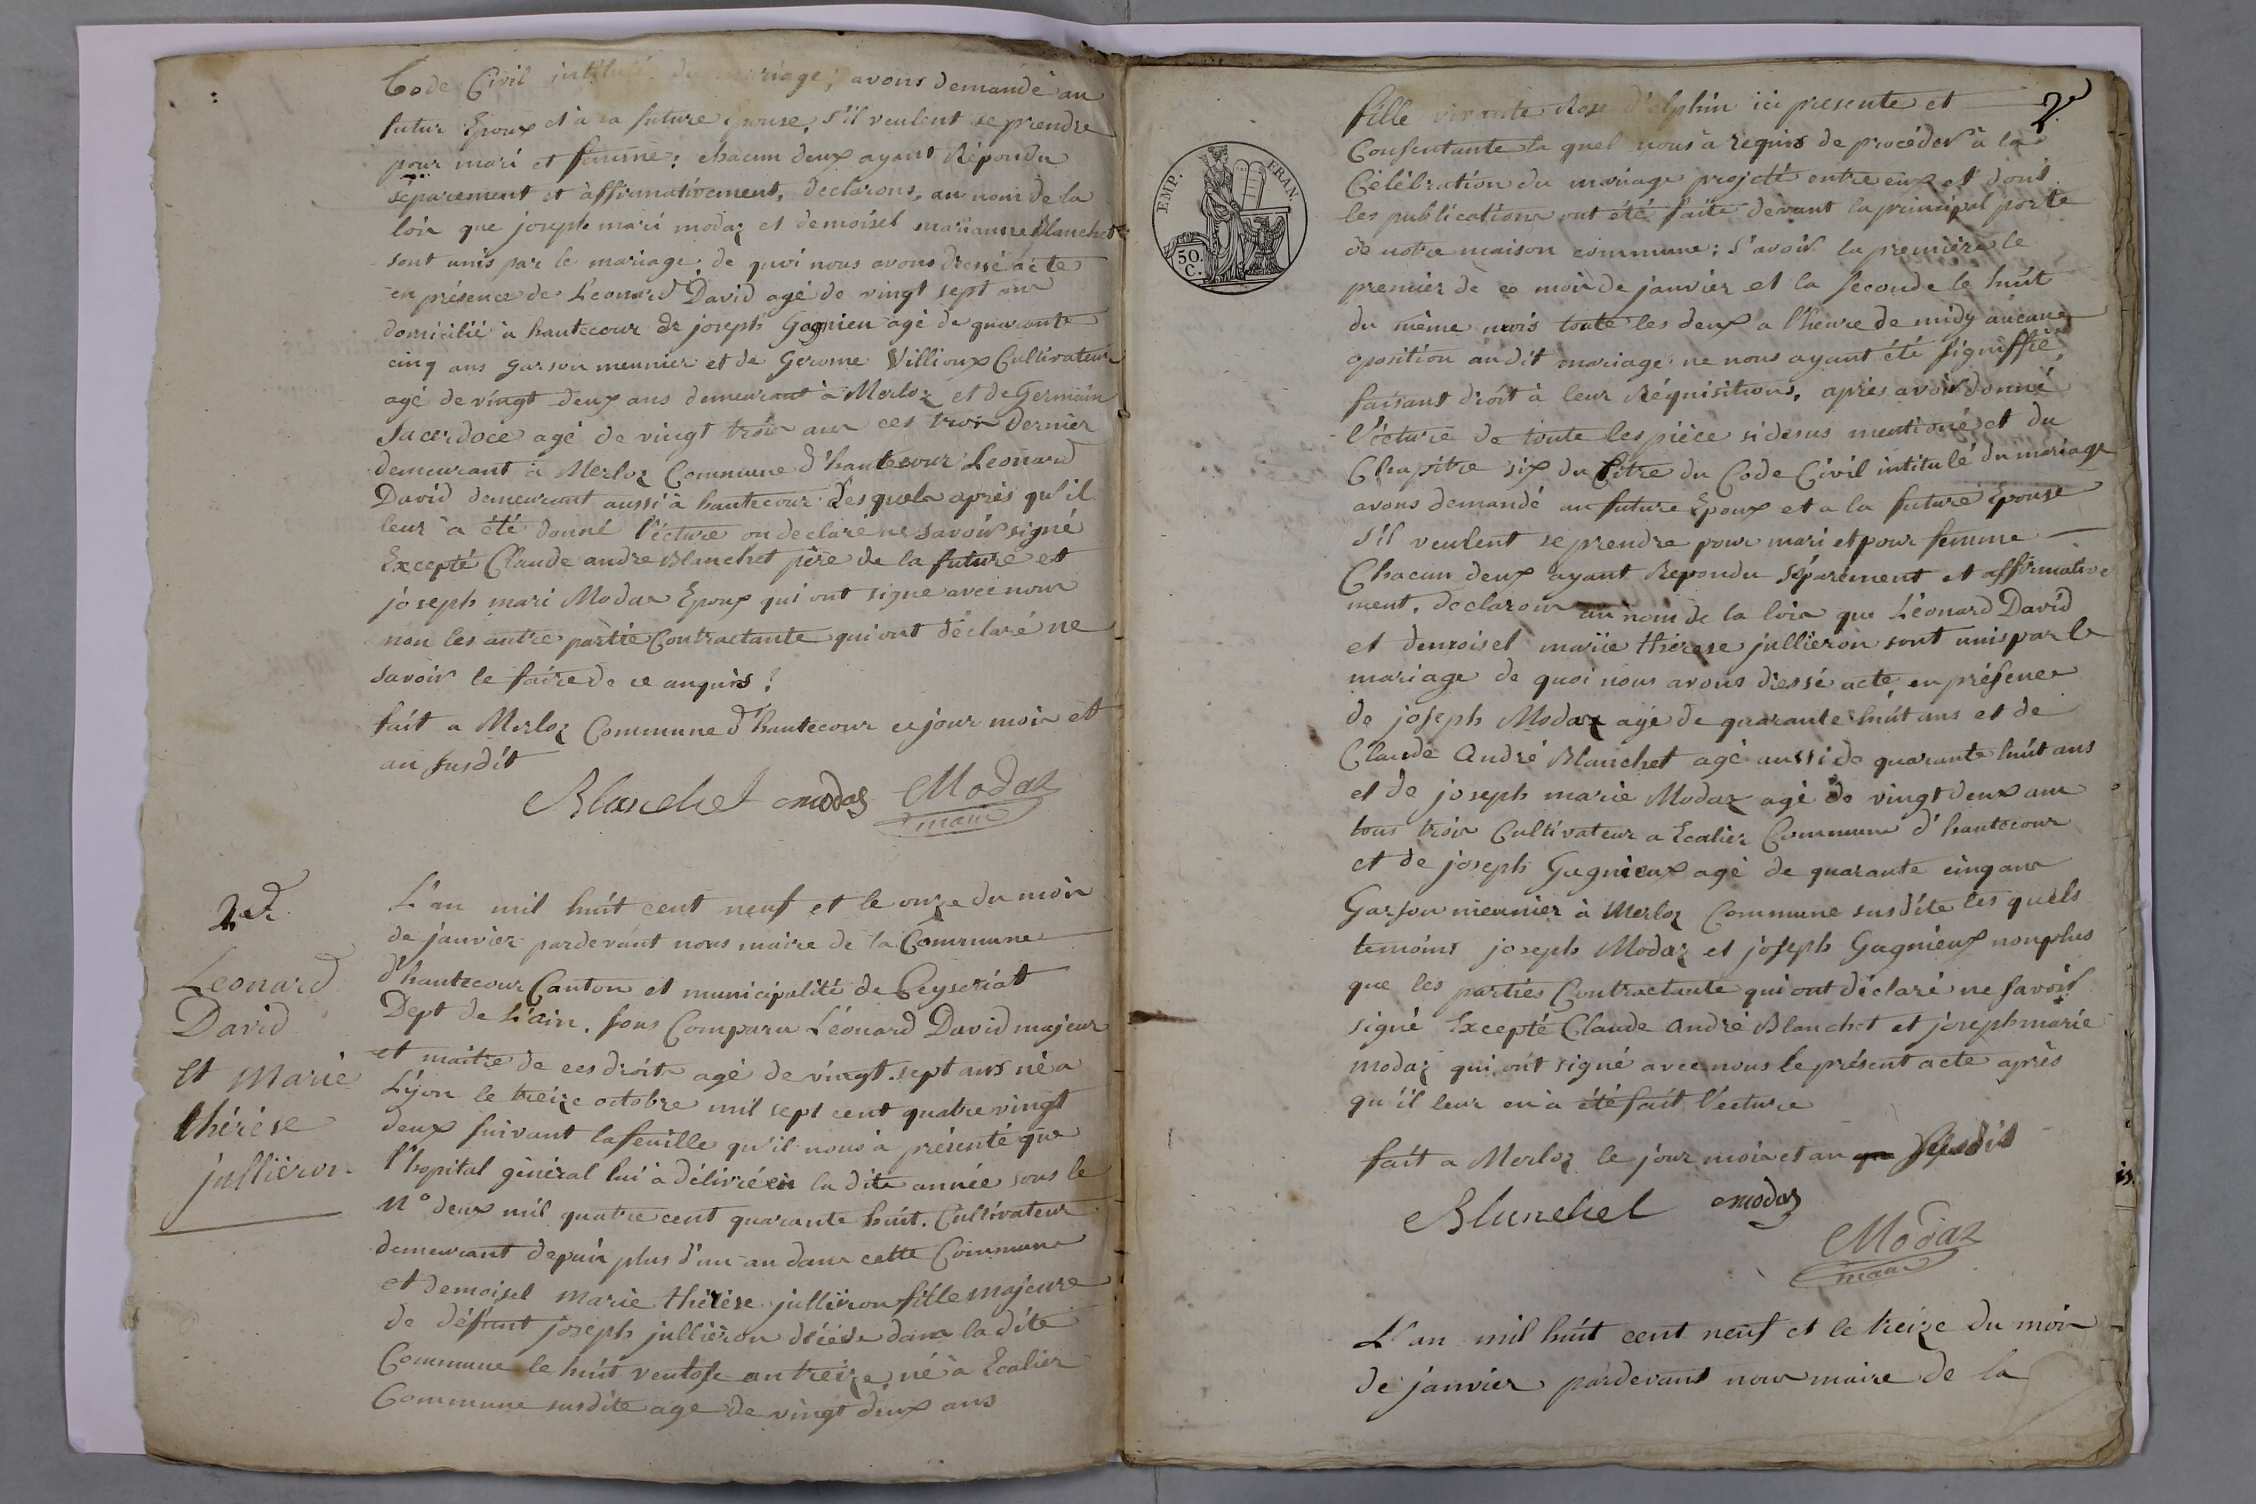 Code Civil intitulé du mariage; avons demandé au
futur Epoux et à la future Epouse, s'il veulent se prendre
pour mari et femme: chacun deux ayant Répondu
séparement et affirmativement, declarons, au nom de la
loix que joseph mari modaz et demoisel marianne Blanchet
sont unis par le mariage; de quoi nous avons dressé acte
en présence de Leonard David agé de vingt sept ans
domicilié à hautecour de joseph Gagnieu agé de quarante
cinq ans garson meunier et de Gerome Villioux Cultivateur
agé de vingt deux ans demeurant à Merloz et de Germain
Sacerdoce agé de vingt trois ans ces trois Dernier
demeurant à Merloz Commune d'hautecour Leonard
David demeurant aussi à hautecour Lesquels après qu'il
leur à été donné l'écture on declare ne savoir signé
Excepté Claude andre Blanchet père de la future et
joseph mari Modaz Epoux qui ont signe avec nous
non les autre partie Contractante qui ont déclaré ne
savoir le faire de ce anquis?
fait a Merloz Commune d'hautecour ce jour mois et
an susdit
Blanchet modaz Modaz
maire
2e
Leonard
David
et Marie
thérése
jullieron
L'an mil huit cent neuf et le onze du mois
de janvier pardevant nous maire de la Commune
d'hautecour Canton et municipalité de Ceyseriat
Dept de L'ain. sous Comparu Léonard David majeur
et maitre de ces droits agé de vingt-sept ans né a
Lÿon le treize octobre mil sept cent quatre vingt
deux suivant la feuille qu'il nous à présenté que
l'hopital général lui à délivré en la dite année sous le
N° deux mil quatre cent quarante huit. Cultivateur
demeurant depuis plus d'un an dans cette Commune
et demoisel marie thérése jullieron fille majeure
de défunt joseph jullieron décéde dans la dite
Commune le huit ventose an treize, né à Ecalier
Commune susdite age de vingt deux ans
2e
EMP. FRAN.
50.
C.
fille vivante Rose D'elphin ici presente et
Consentante la quel nous à requis de procéder à la
Célébration du mariage projetté entre eux et dont
les publications ont été faite devant la principal porte
de notre maison commune: s'avoir la première le
premier de ce mois de janvier et la seconde le huit
du même mois toute les deux a l'heure de midy aucune
oposition audit mariage ne nous ayant été signiffié,
faisant droit à leur Réquisitions, après avoir donné
l'écture de toute les pièce sidesus mentioné et du
Chapitre six du titre du Code Civil intitulé du mariage
avons demandé au future Epoux et a la future Epouse
s'il veulent se prendre pour mari et pour femme
Chacun deux ayant Repondu séparément et affirmative
ment, declarons au nom de la loix que Léonard David
et demoisel mariie thérese jullieron sont unis par le
mariage de quoi nous avons dressé acte, en présence
de joseph Modaz agé de quarante huit ans et de
Claude André Blanchet agé aussi de quarante huit ans
et de joseph marie Modaz agé de vingt deux ans
tous trois Cultivateur a Ecalier Commune d'hautecour
et de joseph Gagnieux agé de quarante cinq ans
Garson meunier à Merloz Commune susdite les quels
temoins joseph Modaz et joseph Gagnieux non plus
que les parties Contractante qui ont déclaré ne savoir
signé Excepté Claude André Blanchet et joseph marie
modaz qui ont signé avec nous le présent acte après
qu'il leur en à été fait l'écture
fait a Merloz le jour mois et an susdit
Blanchet modaz
Modaz
maire
L'an mil huit cent neuf et le treize du mois
de janvier pardevant nous maire de la